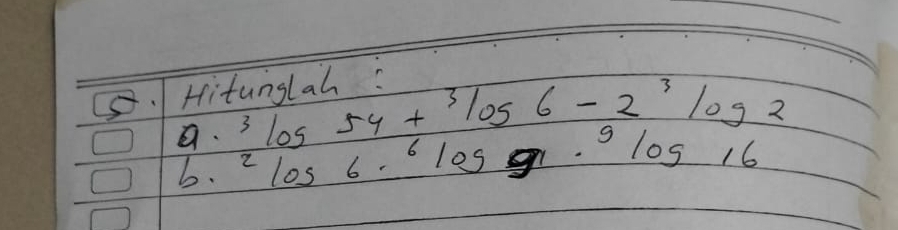 5. Hitunglah :
a. ³ log 54 + ³log 6 - 2 ³ log 2
b. ² log 6 . ⁶ log 9 . ⁹ log 16